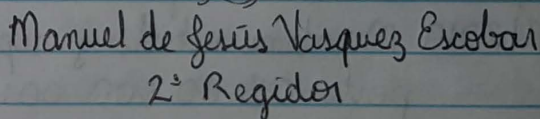 Manuel de Jesús Vasquez Escobar
2º Regidor